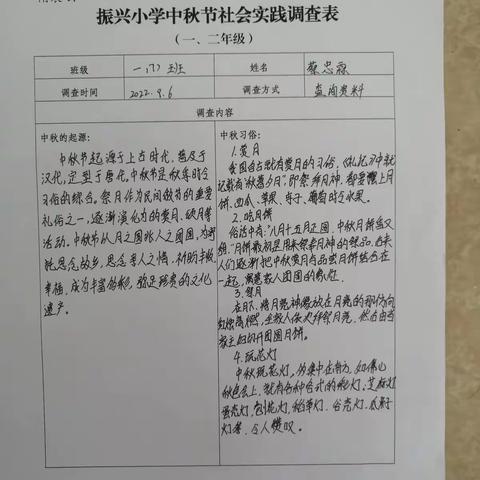 振兴小学中秋节社会实践调查表
（一、二年级）
班级 一（7）班 姓名 蔡忠霖
调查时间 2022.9.6 调查方式 查阅资料
调查内容
中秋的起源:
中秋节起源于上古时代，普及于
汉代，定型于唐代，中秋节是秋季时令
习俗的综合。祭月作为民间祭祀的重要
礼俗之一，逐渐演化为赏月、颂月等
活动。中秋节从月之圆兆人之团圆，为寄
托思念故乡，思念亲人之情，祈盼丰收
幸福，成为丰富多彩，弥足珍贵的文化
遗产。
中秋习俗:
1.赏月
我国自古就有赏月的习俗，《礼记》中就
记载有"秋暮夕月"，即祭拜月神，都要摆上月
饼、西瓜、苹果、枣子、葡萄时令水果。
2.吃月饼
俗话中有:"八月十五月正圆，中秋月饼香又
甜。"月饼最初是用来祭奉月神的祭品，后来
人们逐渐把中秋赏月与品尝月饼结合在
一起，寓意家人团圆的象征。
3.祭月
在月下，将月亮神像放在月亮的那个方向
红烛高燃，全家人依次拜祭月亮，然后由当
家主妇切开团圆月饼。
4.玩花灯
中秋玩花灯，多集中在南方，如佛山
秋色会上，就有各种各式的彩灯：芝麻灯
蛋壳灯，刨花灯，稻草灯，谷壳灯，瓜籽
灯等，令人赞叹。